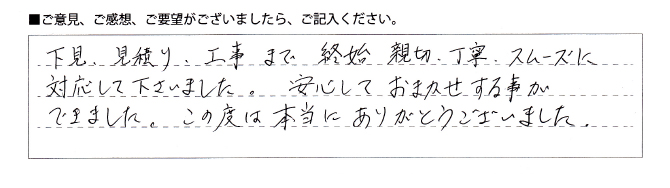 ■ご意見、ご感想、ご要望がございましたら、ご記入ください。
下見、見積り、工事まで終始親切、丁寧、スムーズに
対応して下さいました。安心しておまかせする事が
できました。この度は本当にありがとうございました。